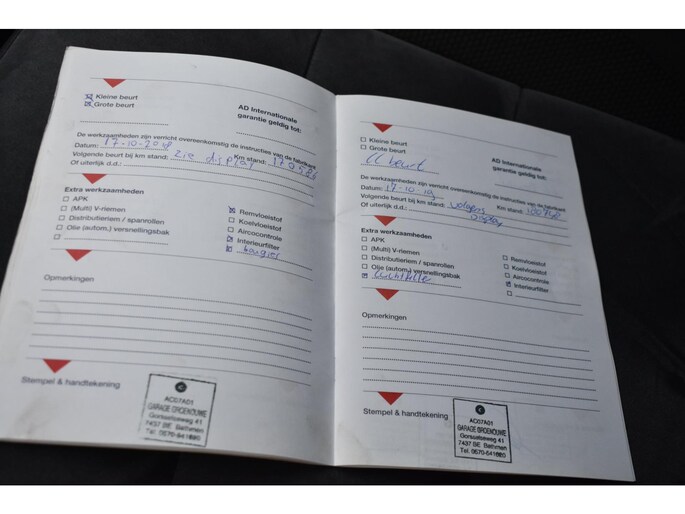 Kleine beurt
Grote beurt
AD Internationale
garantie geldig tot:
De werkzaamheden zijn verricht overeenkomstig de instructies van de fabrikant
Datum: 17-10-2018
Volgende beurt bij km stand: zie display Km stand:
Of uiterlijk d.d.:
Extra werkzaamheden
APK
(Multi) V-riemen
Distributieriem / spanrollen
Olie (autom.) versnellingsbak
Remvloeistof
Koelvloeistof
Aircocontrole
Interieurfilter
bougies
Opmerkingen
Stempel & handtekening
AC07A01
GARAGE GROENOUWE
Gorsselseweg 41
7437 BE Bathmen
Tel. 0570-541660
Kleine beurt
Grote beurt
beurt
AD Internationale
garantie geldig tot:
De werkzaamheden zijn verricht overeenkomstig de instructies van de fabrikant
Datum: 17-10-19
Volgende beurt bij km stand: volgens Km stand:
Of uiterlijk d.d.: display
Extra werkzaamheden
APK
(Multi) V-riemen
Distributieriem / spanrollen
Olie (autom.) versnellingsbak
luchtfilter
Remvloeistof
Koelvloeistof
Aircocontrole
Interieurfilter
Opmerkingen
Stempel & handtekening
AC07A01
GARAGE GROENOUWE
Gorsselseweg 41
7437 BE Bathmen
Tel. 0570-541660